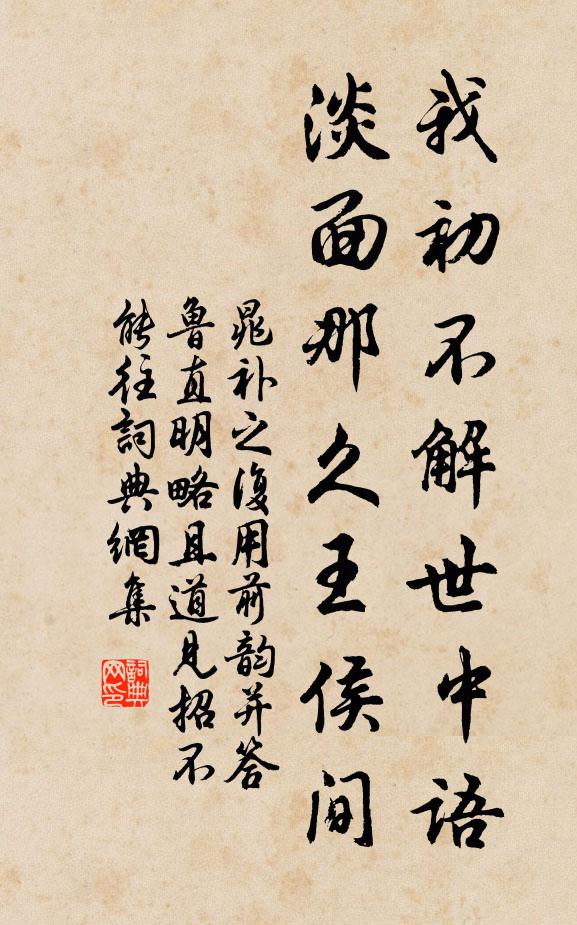 我初不解世中語
淡面那久王侯間
晁补之復用前韵并答
魯直明略且道見招不
能往詞典網集
詞典网印